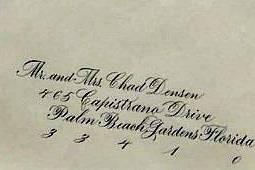 Mr. and Mrs. Chad Densen
465 Capistrano Drive
Palm Beach Gardens Florida
3 3 4 1 0